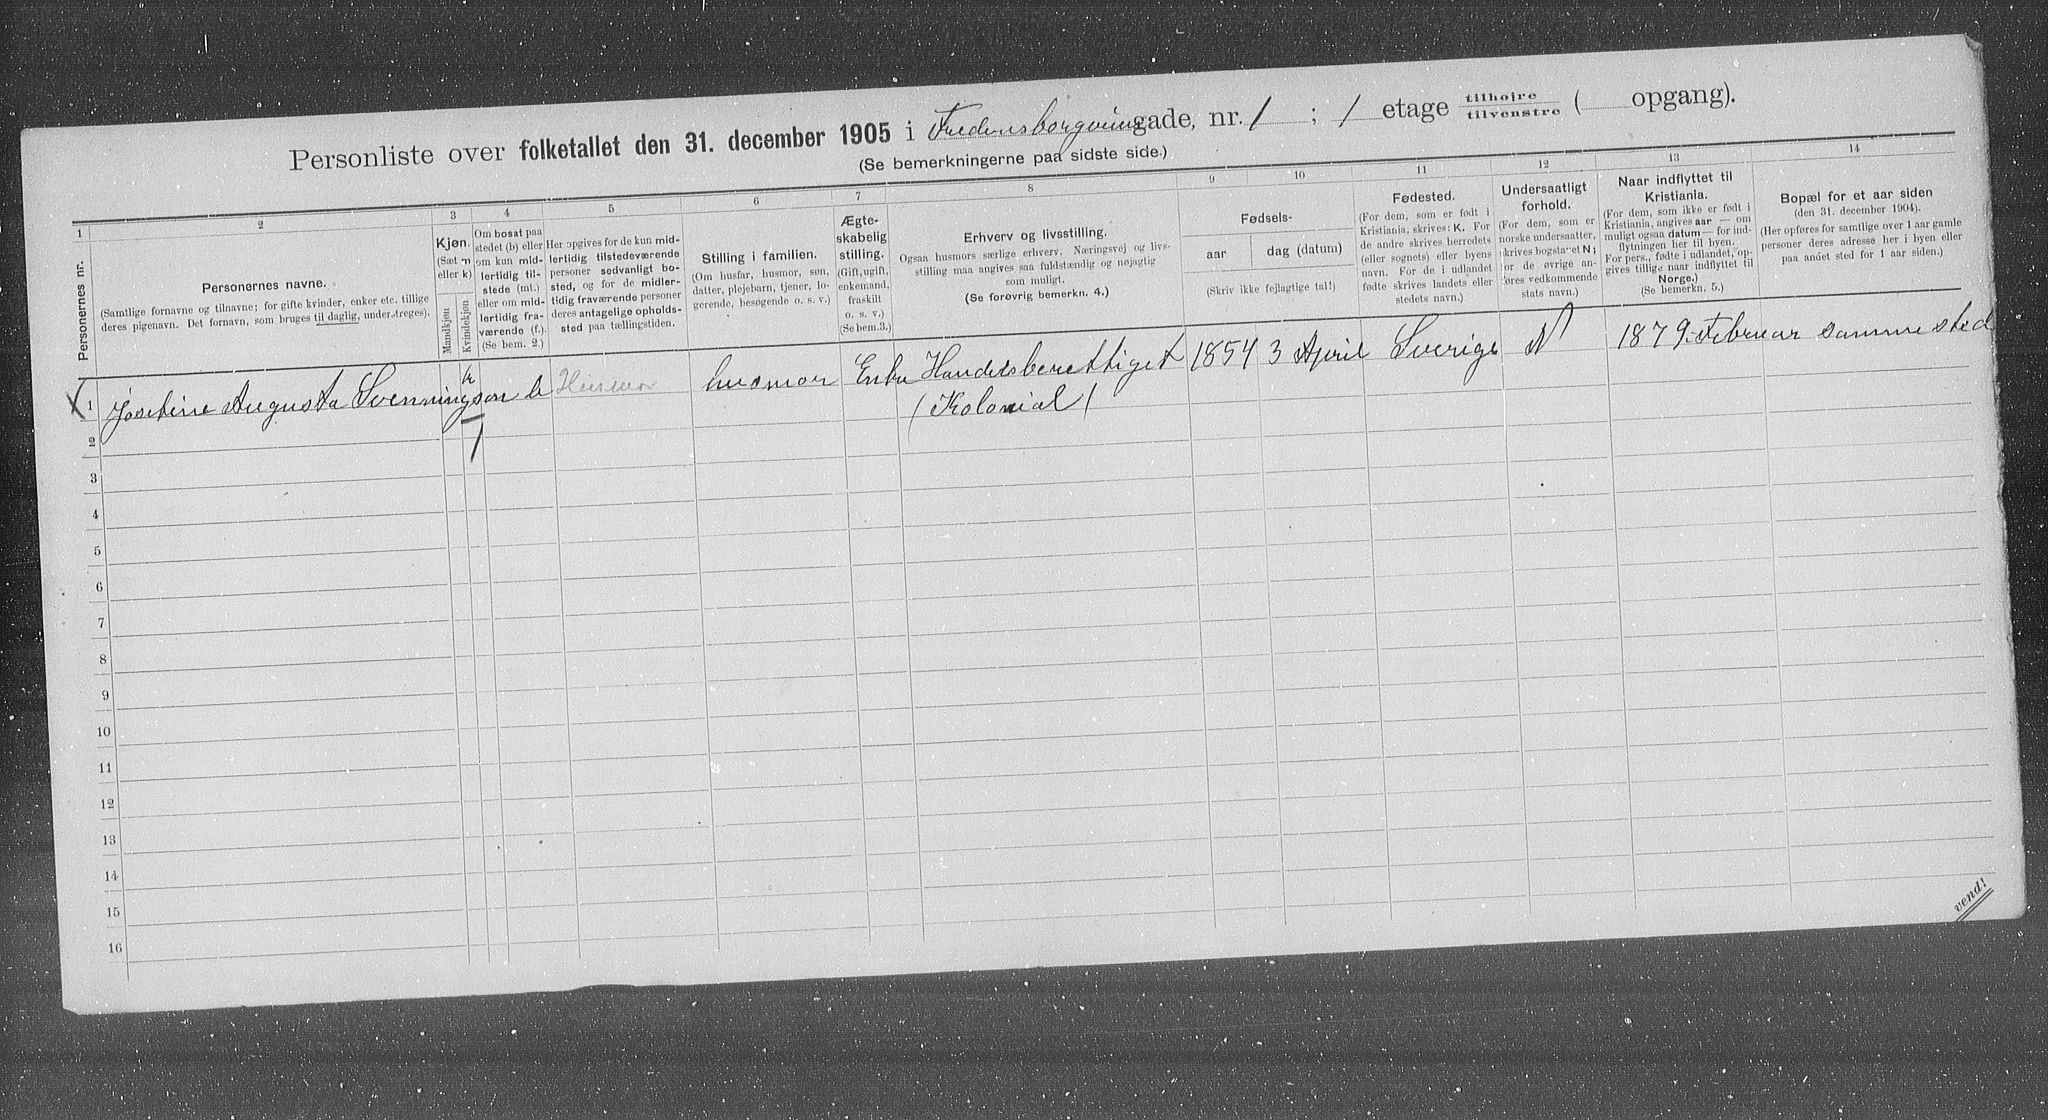 Personliste over folketallet den 31. december 1905 i Fredensborgveien gade, nr. 1 ; 1 etage tilhøire tilvenstre ( opgang).
(Se bemerkningerne paa sidste side.)
1 2 3 4 5 6 7 8 9 10 11 12 13 14
Personernes nr.
Personernes navne.
(Samtlige fornavne og tilnavne; for gifte kvinder, enker etc. tillige
deres pigenavn. Det fornavn, som bruges til daglig, understreges).
Kjøn.
(Sæt m
eller k)
Mandkjøn
Kvindekjøn
Om bosat paa
stedet (b) eller
om kun mid-
lertidig til-
stede (mt.)
eller om mid-
lertidig fra-
værende (f.).
(Se bem. 2.)
Her opgives for de kun mid-
lertidig tilstedeværende
personer sedvanligt bo-
sted, og for de midler-
tidig fraværende personer
deres antagelige opholds-
sted paa tællingstiden.
Stilling i familien.
(Om husfar, husmor, søn,
datter, plejebarn, tjener, lo-
gerende, besøgende o. s. v.)
Ægte-
skabelig
stilling.
(Gift, ugift,
enkemand,
fraskilt
o. s. v.)
(Se bem.3.)
Erhverv og livsstilling.
Ogsaa husmors særlige erhverv. Næringsvej og livs-
stilling maa angives saa fuldstændig og nøjagtig
som muligt.
(Se forøvrig bemerkn. 4.)
Fødsels-
aar
dag (datum)
(Skriv ikke fejlagtige tal!)
Fødested.
(For dem, som er født i
Kristiania, skrives: K. For
de andre skrives herredets
(eller sognets) eller byens
navn. For de i udlandet
fødte skrives landets eller
stedets navn.)
Undersaatligt
forhold.
(For dem, som er
norske undersaatter,
skrives bogstavet N;
for de øvrige an-
føres vedkommende
stats navn.)
Naar indflyttet til
Kristiania.
(For dem, som ikke er født i
Kristiania, angives aar — om
muligt ogsaa datum — for ind-
flytningen her til byen.
For pers., fødte i udlandet, op-
gives tillige naar indflyttet til
Norge.)
(Se bemerkn. 5.)
Bopæl for et aar siden
(den 31. december 1904).
(Her opføres for samtlige over 1 aar gamle
personer deres adresse her i byen eller
paa andet sted for 1 aar siden.)
X 1 Josefine Augusta Svenningson k b Husmor husmor Enke Handelsberettiget 1854 3 April Sverige N 1879. Februar samme sted
(Kolonial)
1
2
3
4
5
6
7
8
9
10
11
12
13
14
15
16
vend!